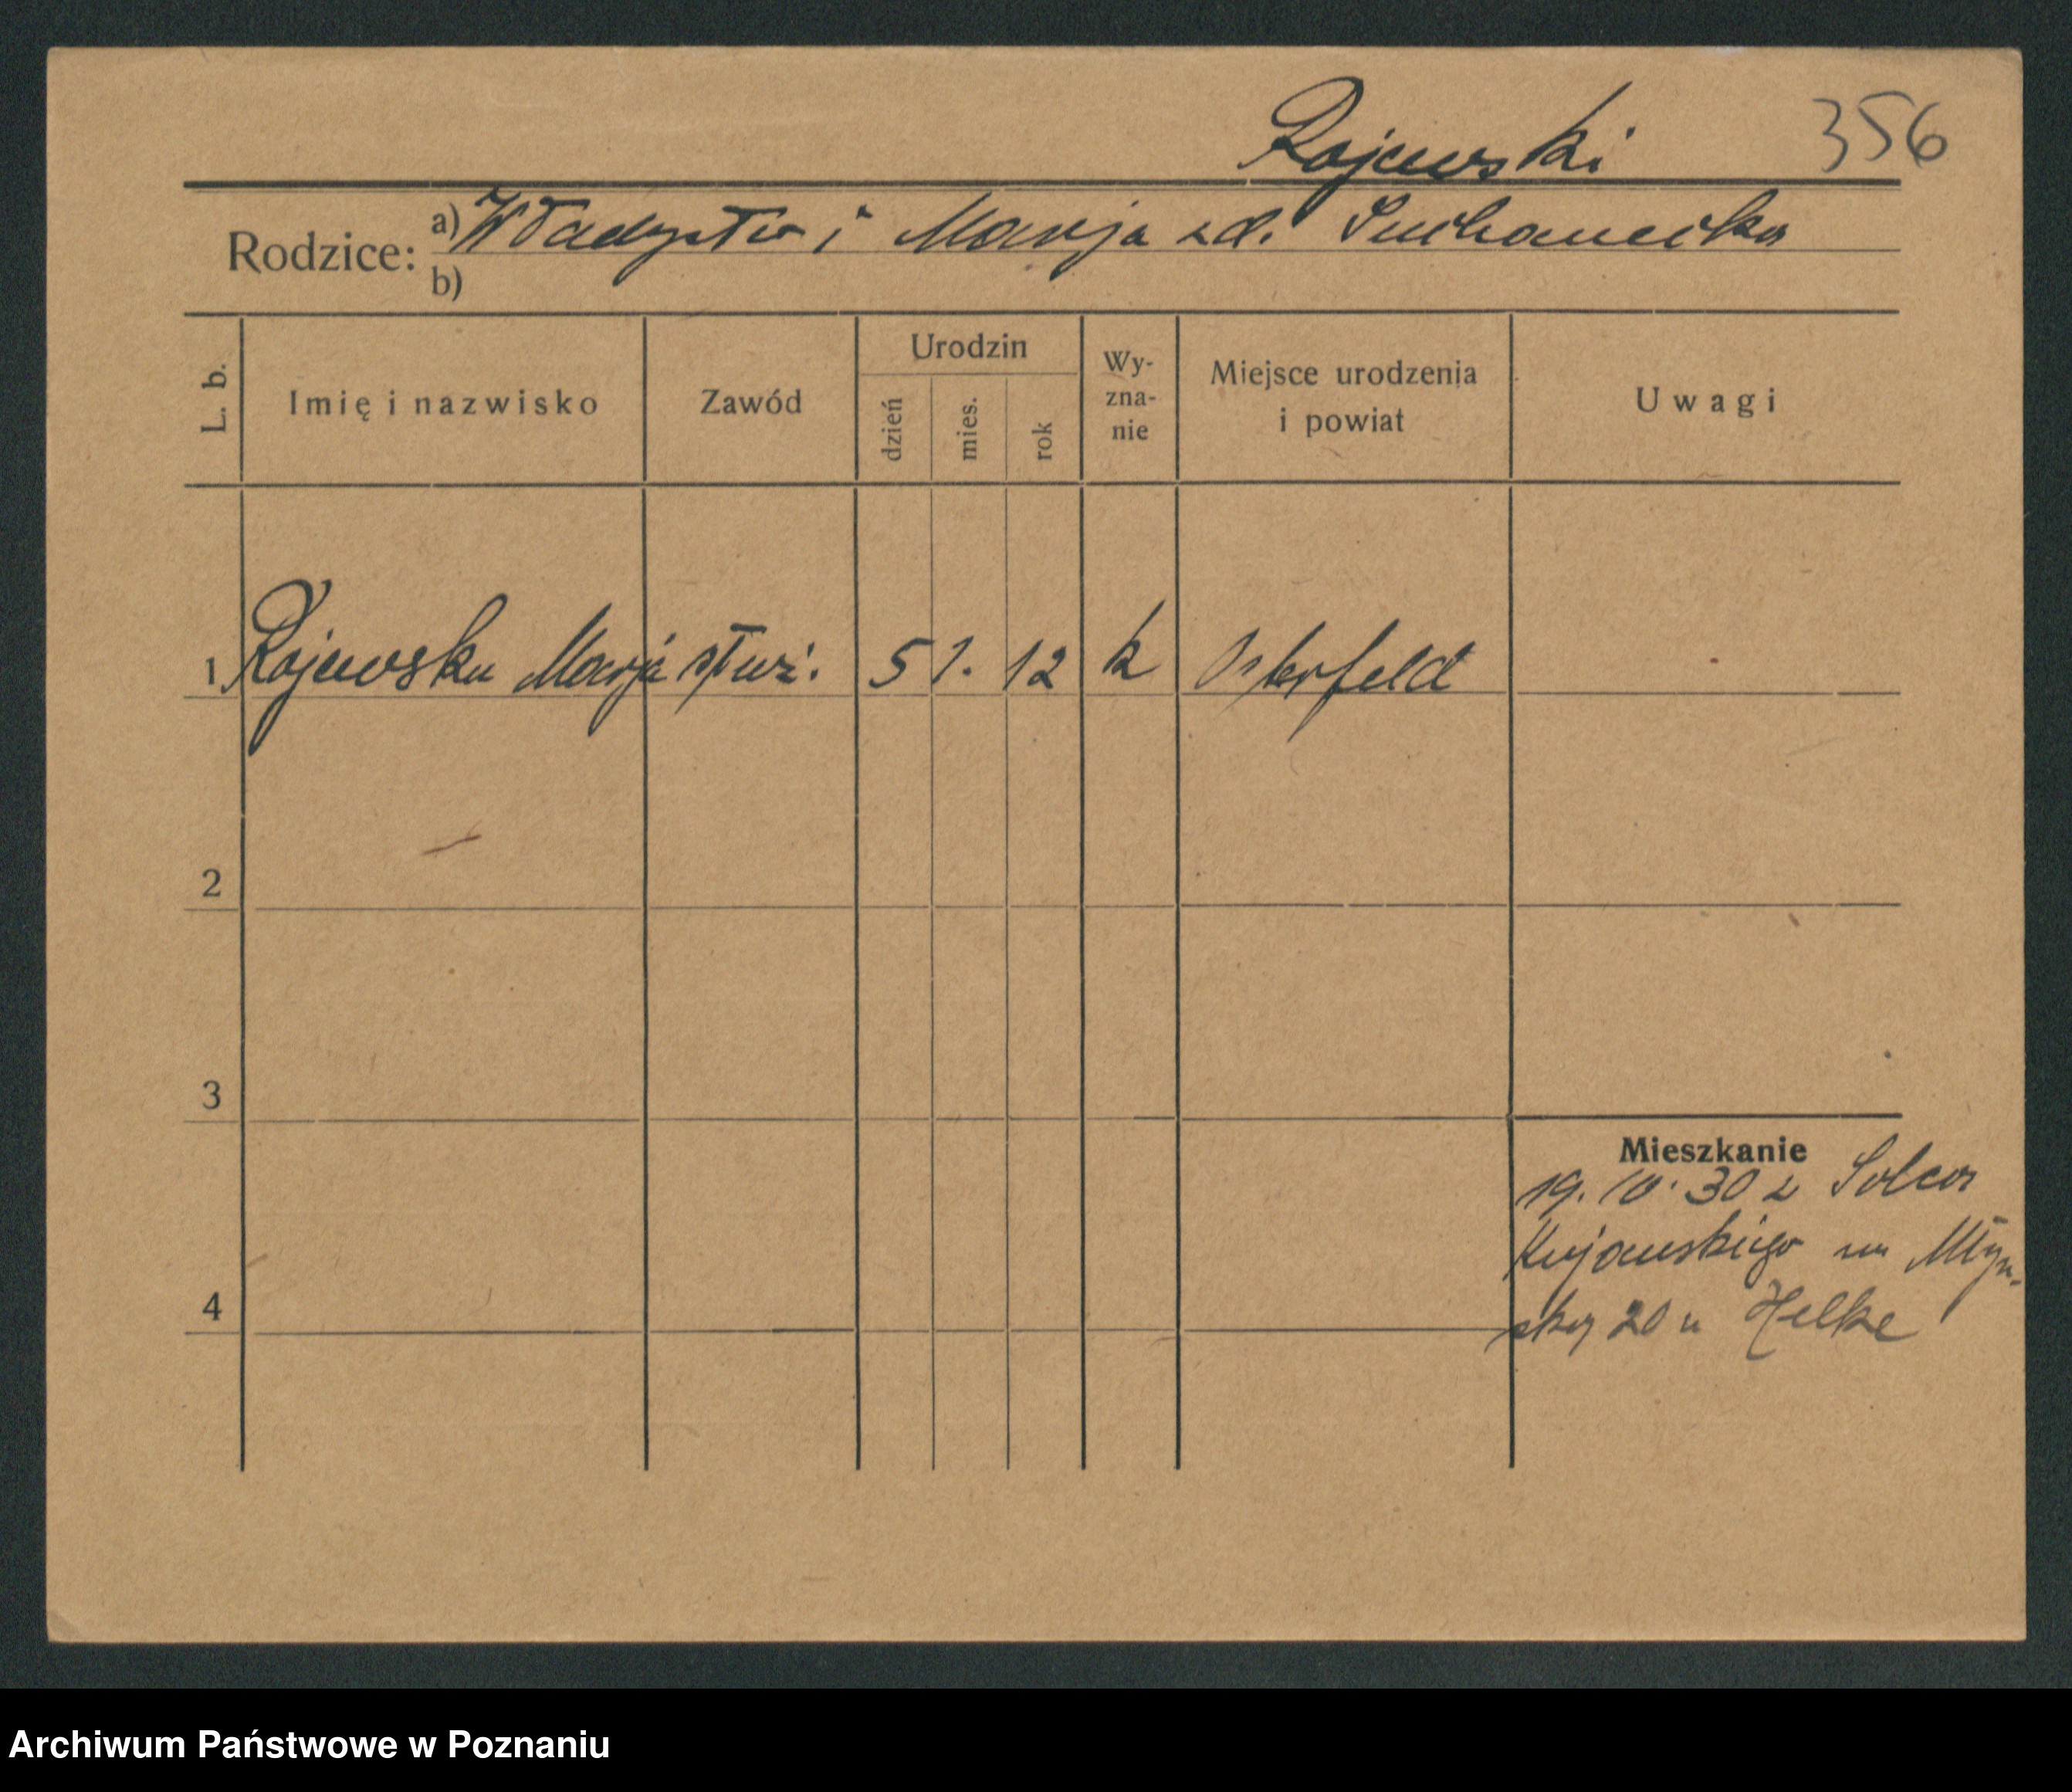 Rajewski 356
Rodzice: a) Władysław i Marja zd. Suchanecka
b)
L. b. Imię i nazwisko Zawód Urodzin dzień mies. rok Wy-znanie Miejsce urodzenia i powiat Uwagi
1 Rajewska Marja służ. 5 1. 12 k Osterfeld
2
3
Mieszkanie
19. IV. 30 z Solca
Kujawskiego na Młyń-
4
ską 20 u Helke
Archiwum Państwowe w Poznaniu